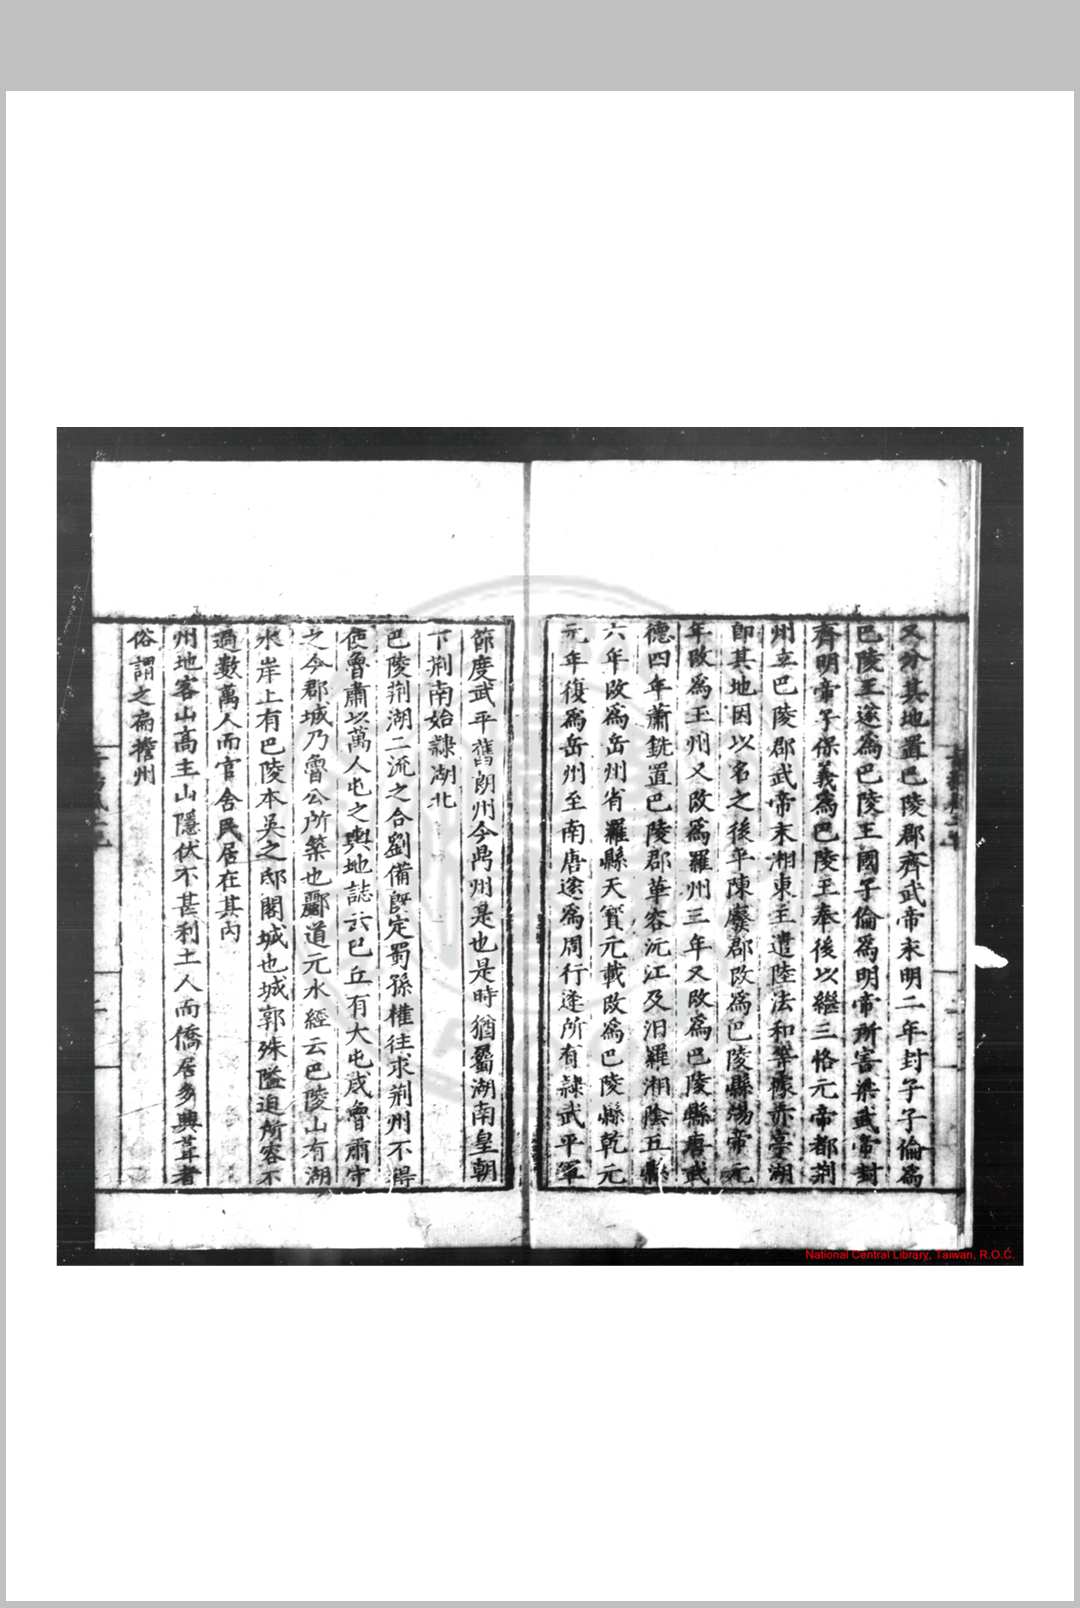 又分其地置巴陵郡齊武帝末明二年封子子倫為
巴陵王遂為巴陵王國子倫為明帝所害梁武帝封
齊明帝子保義為巴陵王奉後以繼三恪元帝都荊
州立巴陵郡武帝末湘東王遣陸法和等據赤亭湖
即其地因以名之後平陳廢郡改為巴陵縣煬帝元
年改為玉州又改為羅州三年又改為巴陵縣唐武
德四年蕭銑置巴陵郡華容沅江及汨羅湘陰五縣
六年改為岳州省羅縣天寶元載改為巴陵縣乾元
元年復為岳州至南唐遂為周行逢所有隷武平軍
節度武平舊朗州今鼎州是也是時猶屬湖南皇朝
下荊南始隷湖北
巴陵荊湖二流之合劉備旣定蜀孫權往求荊州不得
使魯肅以萬人屯之輿地誌云巴丘有大屯戍魯肅守
之今郡城乃魯公所築也酈道元水經云巴陵山有湖
水岸上有巴陵本吳之邸閣城也城郭殊隘迫所容不
過數萬人而官舍民居在其內
州地客山高主山隱伏不甚利土人而僑居多興葺者
俗謂之扁擔州
National Central Library, Taiwan, R.O.C.